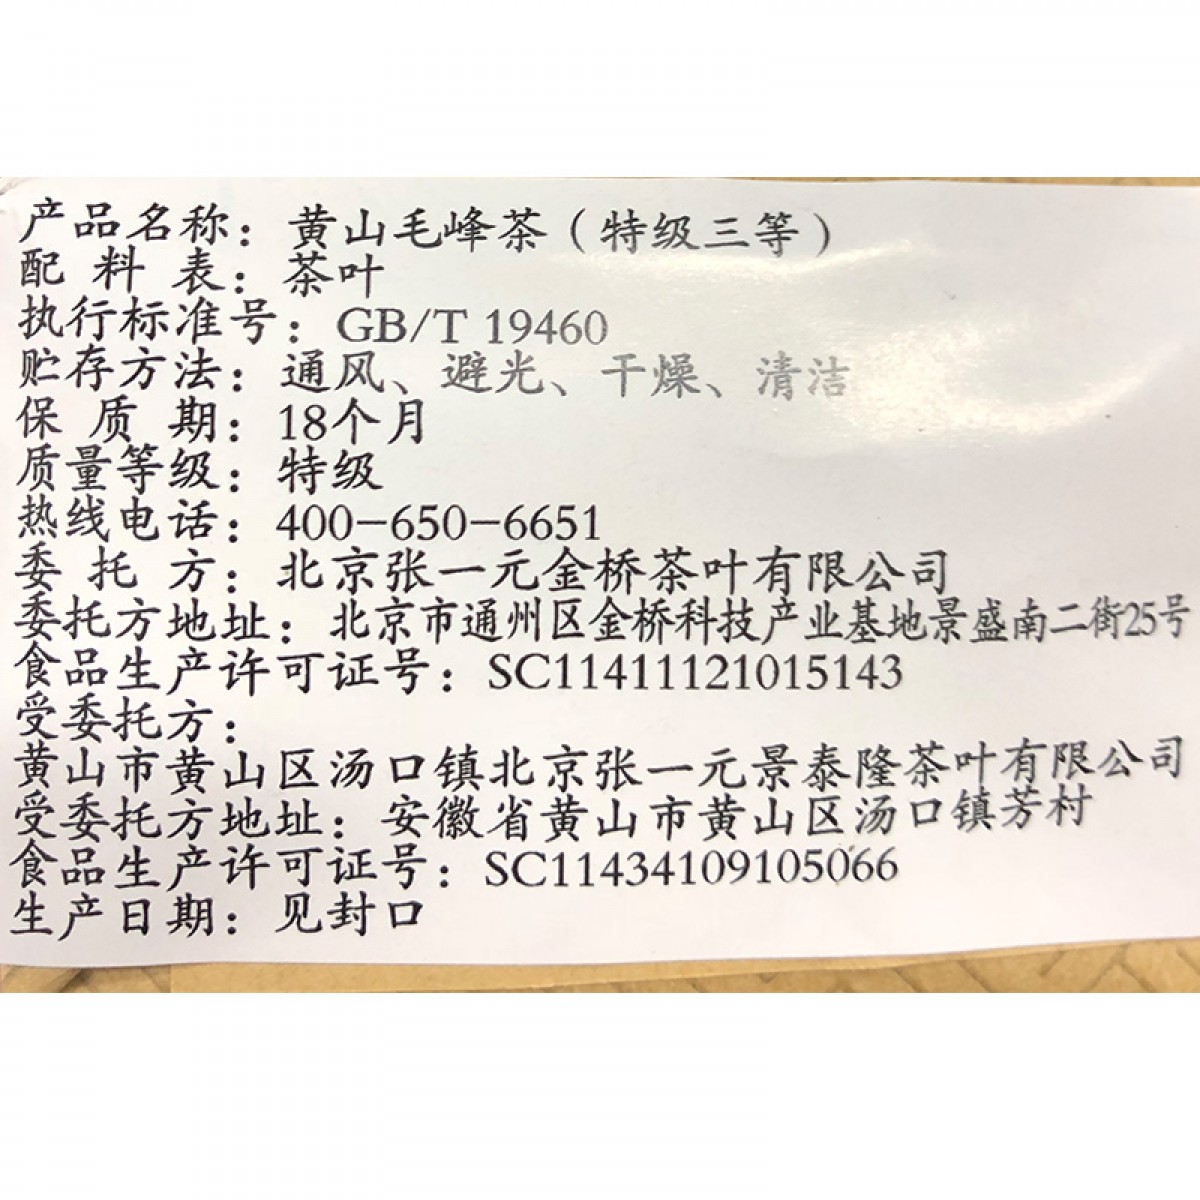 产品名称：黄山毛峰茶（特级三等）
配料表：茶叶
执行标准号：GB/T 19460
贮存方法：通风、避光、干燥、清洁
保质期：18个月
质量等级：特级
热线电话：400-650-6651
委托方：北京张一元金桥茶叶有限公司
委托方地址：北京市通州区金桥科技产业基地景盛南二街25号
食品生产许可证号：SC11411121015143
受委托方：
黄山市黄山区汤口镇北京张一元景泰隆茶叶有限公司
受委托方地址：安徽省黄山市黄山区汤口镇芳村
食品生产许可证号：SC11434109105066
生产日期：见封口